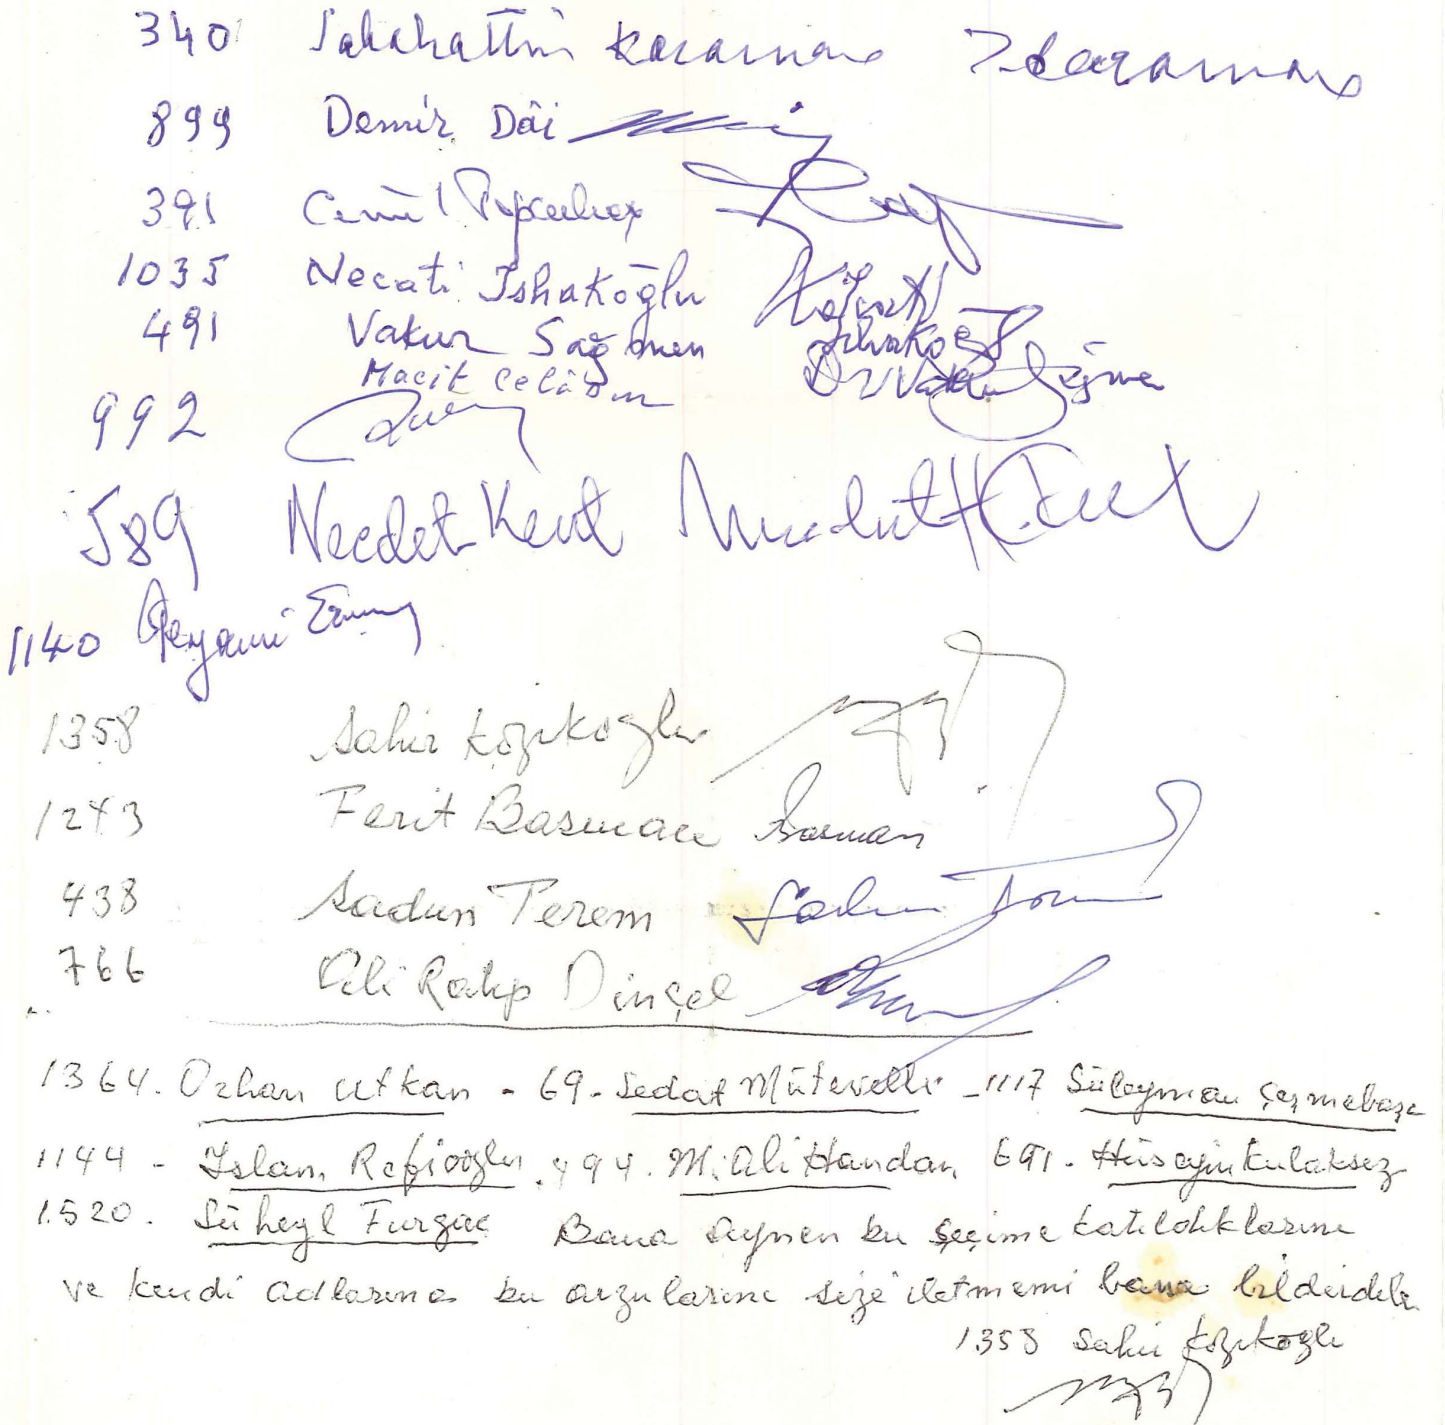 340 Salahattin Karaman Karaman
899 Demir Dâi
391 Cemil
1035 Necati Ishakoğlu Necati Ishakoğlu
491 Vakur Sağmen Dr Vakur Sağmen
Macit
992
589 Necdet Kent Necdet H. Kent
1140
1358 Sahir Kozikoğlu
1243 Ferit Basmacı Basmacı
438 Sadun Terem Sadun Terem
766 Ali Rakıp Dinçel
1364. Orhan Utkan - 69 - Sedat Mütevelli - 1117 Süleyman Çeşmebaşı
1144 - Islam Refioğlu 494. M. Ali Handan 691 - Hüseyin Kulaksız
1520. Süheyl Furgaç Bana aynen bu seçime katıldıklarını
ve kendi adlarına bu arzularını size iletmemi bana bildirdiler
1358 Sahir Kozikoğlu